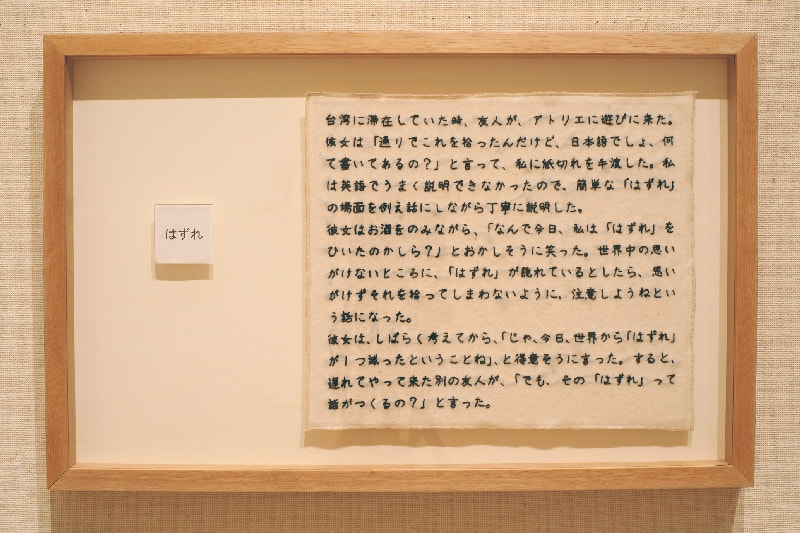 はずれ
台湾に滞在していた時、友人が、アトリエに遊びに来た。
彼女は「通りでこれを拾ったんだけど、日本語でしょ、何
て書いてあるの？」と言って、私に紙切れを手渡した。私
は英語でうまく説明できなかったので、簡単な「はずれ」
の場面を例え話にしながら丁寧に説明した。
彼女はお酒をのみながら、「なんで今日、私は「はずれ」を
ひいたのかしら？」とおかしそうに笑った。世界中の思い
がけないところに、「はずれ」が隠れているとしたら、思い
がけずそれを拾ってしまわないように、注意しようねとい
う話になった。
彼女は、しばらく考えてから、「じゃ、今日、世界から「はずれ」
が１つ減ったということね」、と得意そうに言った。すると、
遅れてやって来た別の友人が、「でも、その「はずれ」って
誰がつくるの？」と言った。